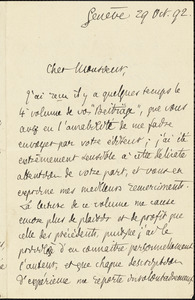 Genève 29 Oct. 92
Cher Monsieur,
J'ai reçu il y a quelques temps le
4e volume de vos "Beiträge", que vous
avez eu l'amabilité de me faire
envoyer par votre éditeur; j'ai été
extrêmement sensible à cette délicate
attention de votre part, et vous en
exprime mes meilleurs remerciements.
La lecture de ce volume me cause
encore plus de plaisir et de profit que
celle des précédents, puisque j'ai
le privilège d'en connaître personnellement
l'auteur, et que chaque description
d'expérience me reporte involontairement